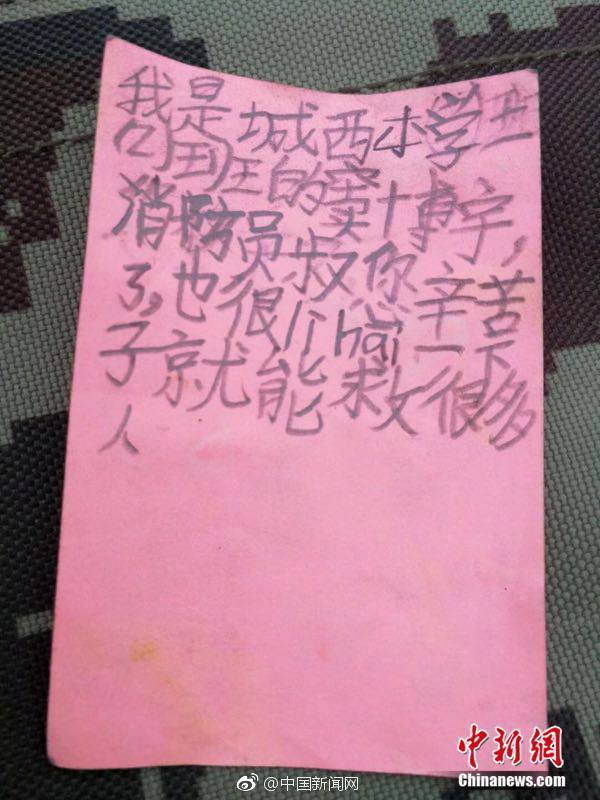 我是城西小学
班的窦博宇,
消防员叔你辛苦
了,也很li hai一下
子就能救很多
人
中新網
Chinanews.com
@中国新闻网